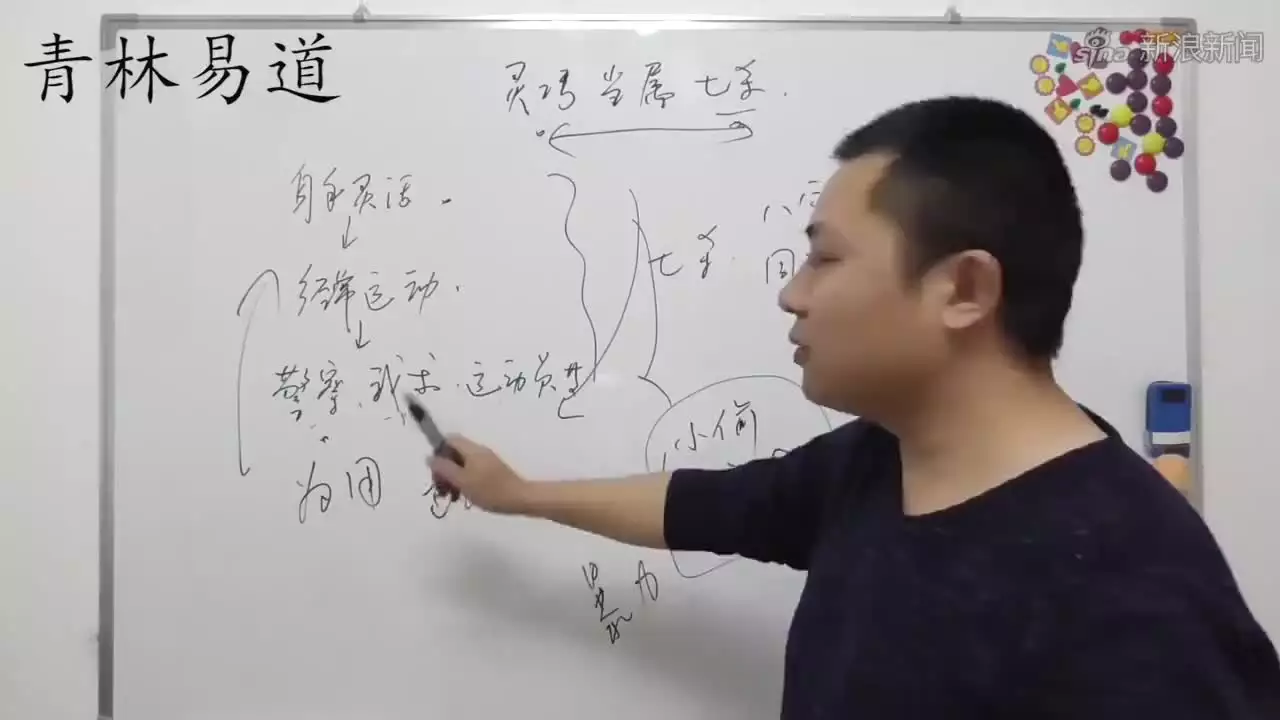 青林易道
sina 新浪新闻
灵巧当属七杀.
身手灵活.
经常运动.
七杀.
警察.武术.运动员
小偷
暴力